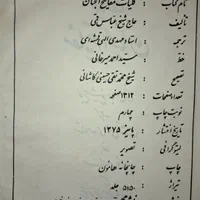 نام کتاب : کلیات مفاتیح الجنان
تألیف : حاج شیخ عباس قمی
ترجمه : استاد مهدی الهی قمشه‌ای
خط : سید احمد میرخانی
تصحیح : شیخ محمد تقی حسینی کاشانی
تعداد صفحات : ۱۳۱۲ صفحه
نوبت چاپ : چهارم
تاریخ انتشار : پاییز ۱۳۷۵
لیتوگرافی : تصویر
چاپ : چاپخانه هامون
تیراژ : ۵۱۵۰ جلد